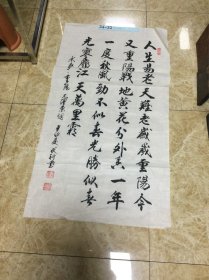 人生易老天難老歲歲重陽今
又重陽戰地黃花分外香一年
一度秋風勁不似春光勝似春
光寥廓江天萬里霜